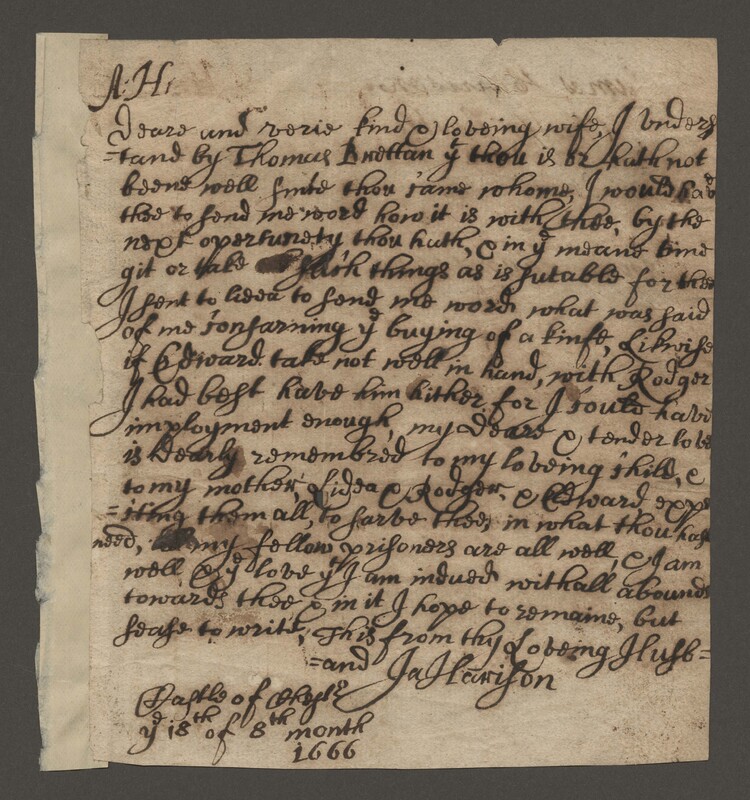 A: H:
Deare and verie kind & loveing wife, I unders
=tand by Thomas Brettan yt thou is or hath not
beene well sinte thou came whome, I would have
thee to send me word how it is with thee, by the
next opertunety thou hath, & in ye meane time
git or take such things as is sutable for thee
I sent to Lidea to send me word, what was said
of me consarning ye buying of a kinfe, Likwise
if Edward take not well in hand, with Rodger
I had best have him hither for I could have
imployment enough, my Deare & tender love
is Dearly remembred to my loveing child, &
to my mother, Lidea & Rodger, & Edward, expe
=cting them all, to sarve thee, in what thou hast
need, my fellow prisoners are all well, & I am
well, & ye love yt I am indued withall abounds
towards thee & in it I hope to remaine, but
sease to write, This from thy Loveing Husb=
=and Ja Harison
Castle of Chestr
ye 18th of 8th month
1666